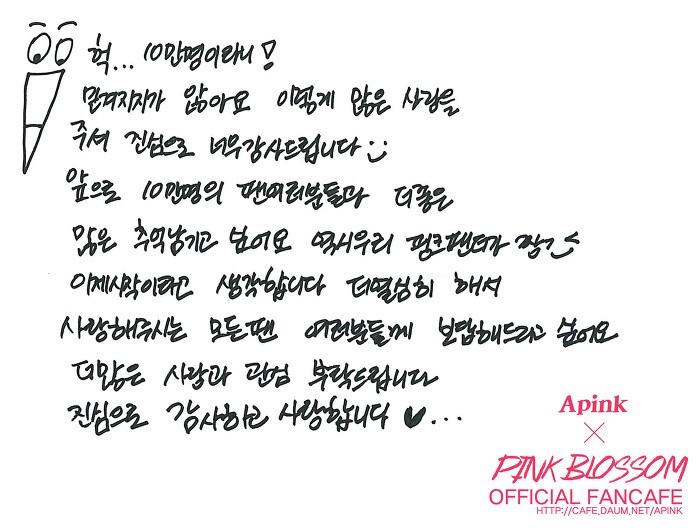 헉... 10만명이라니!
믿겨지지가 않아요 이렇게 많은 사랑을
주셔 진심으로 너무감사드립니다 :)
앞으로 10만명의 팬여러분들과 더좋은
많은 추억남기고 싶어요 역시우리 핑크팬더가 짱?
이제시작이라고 생각합니다 더열심히 해서
사랑해주시는 모든팬 여러분들께 보답해드리고 싶어요
더많은 사랑과 관심 부탁드립니다
진심으로 감사하고 사랑합니다 ♥...
Apink
×
PINK BLOSSOM
OFFICIAL FANCAFE
HTTP://CAFE.DAUM.NET/APINK